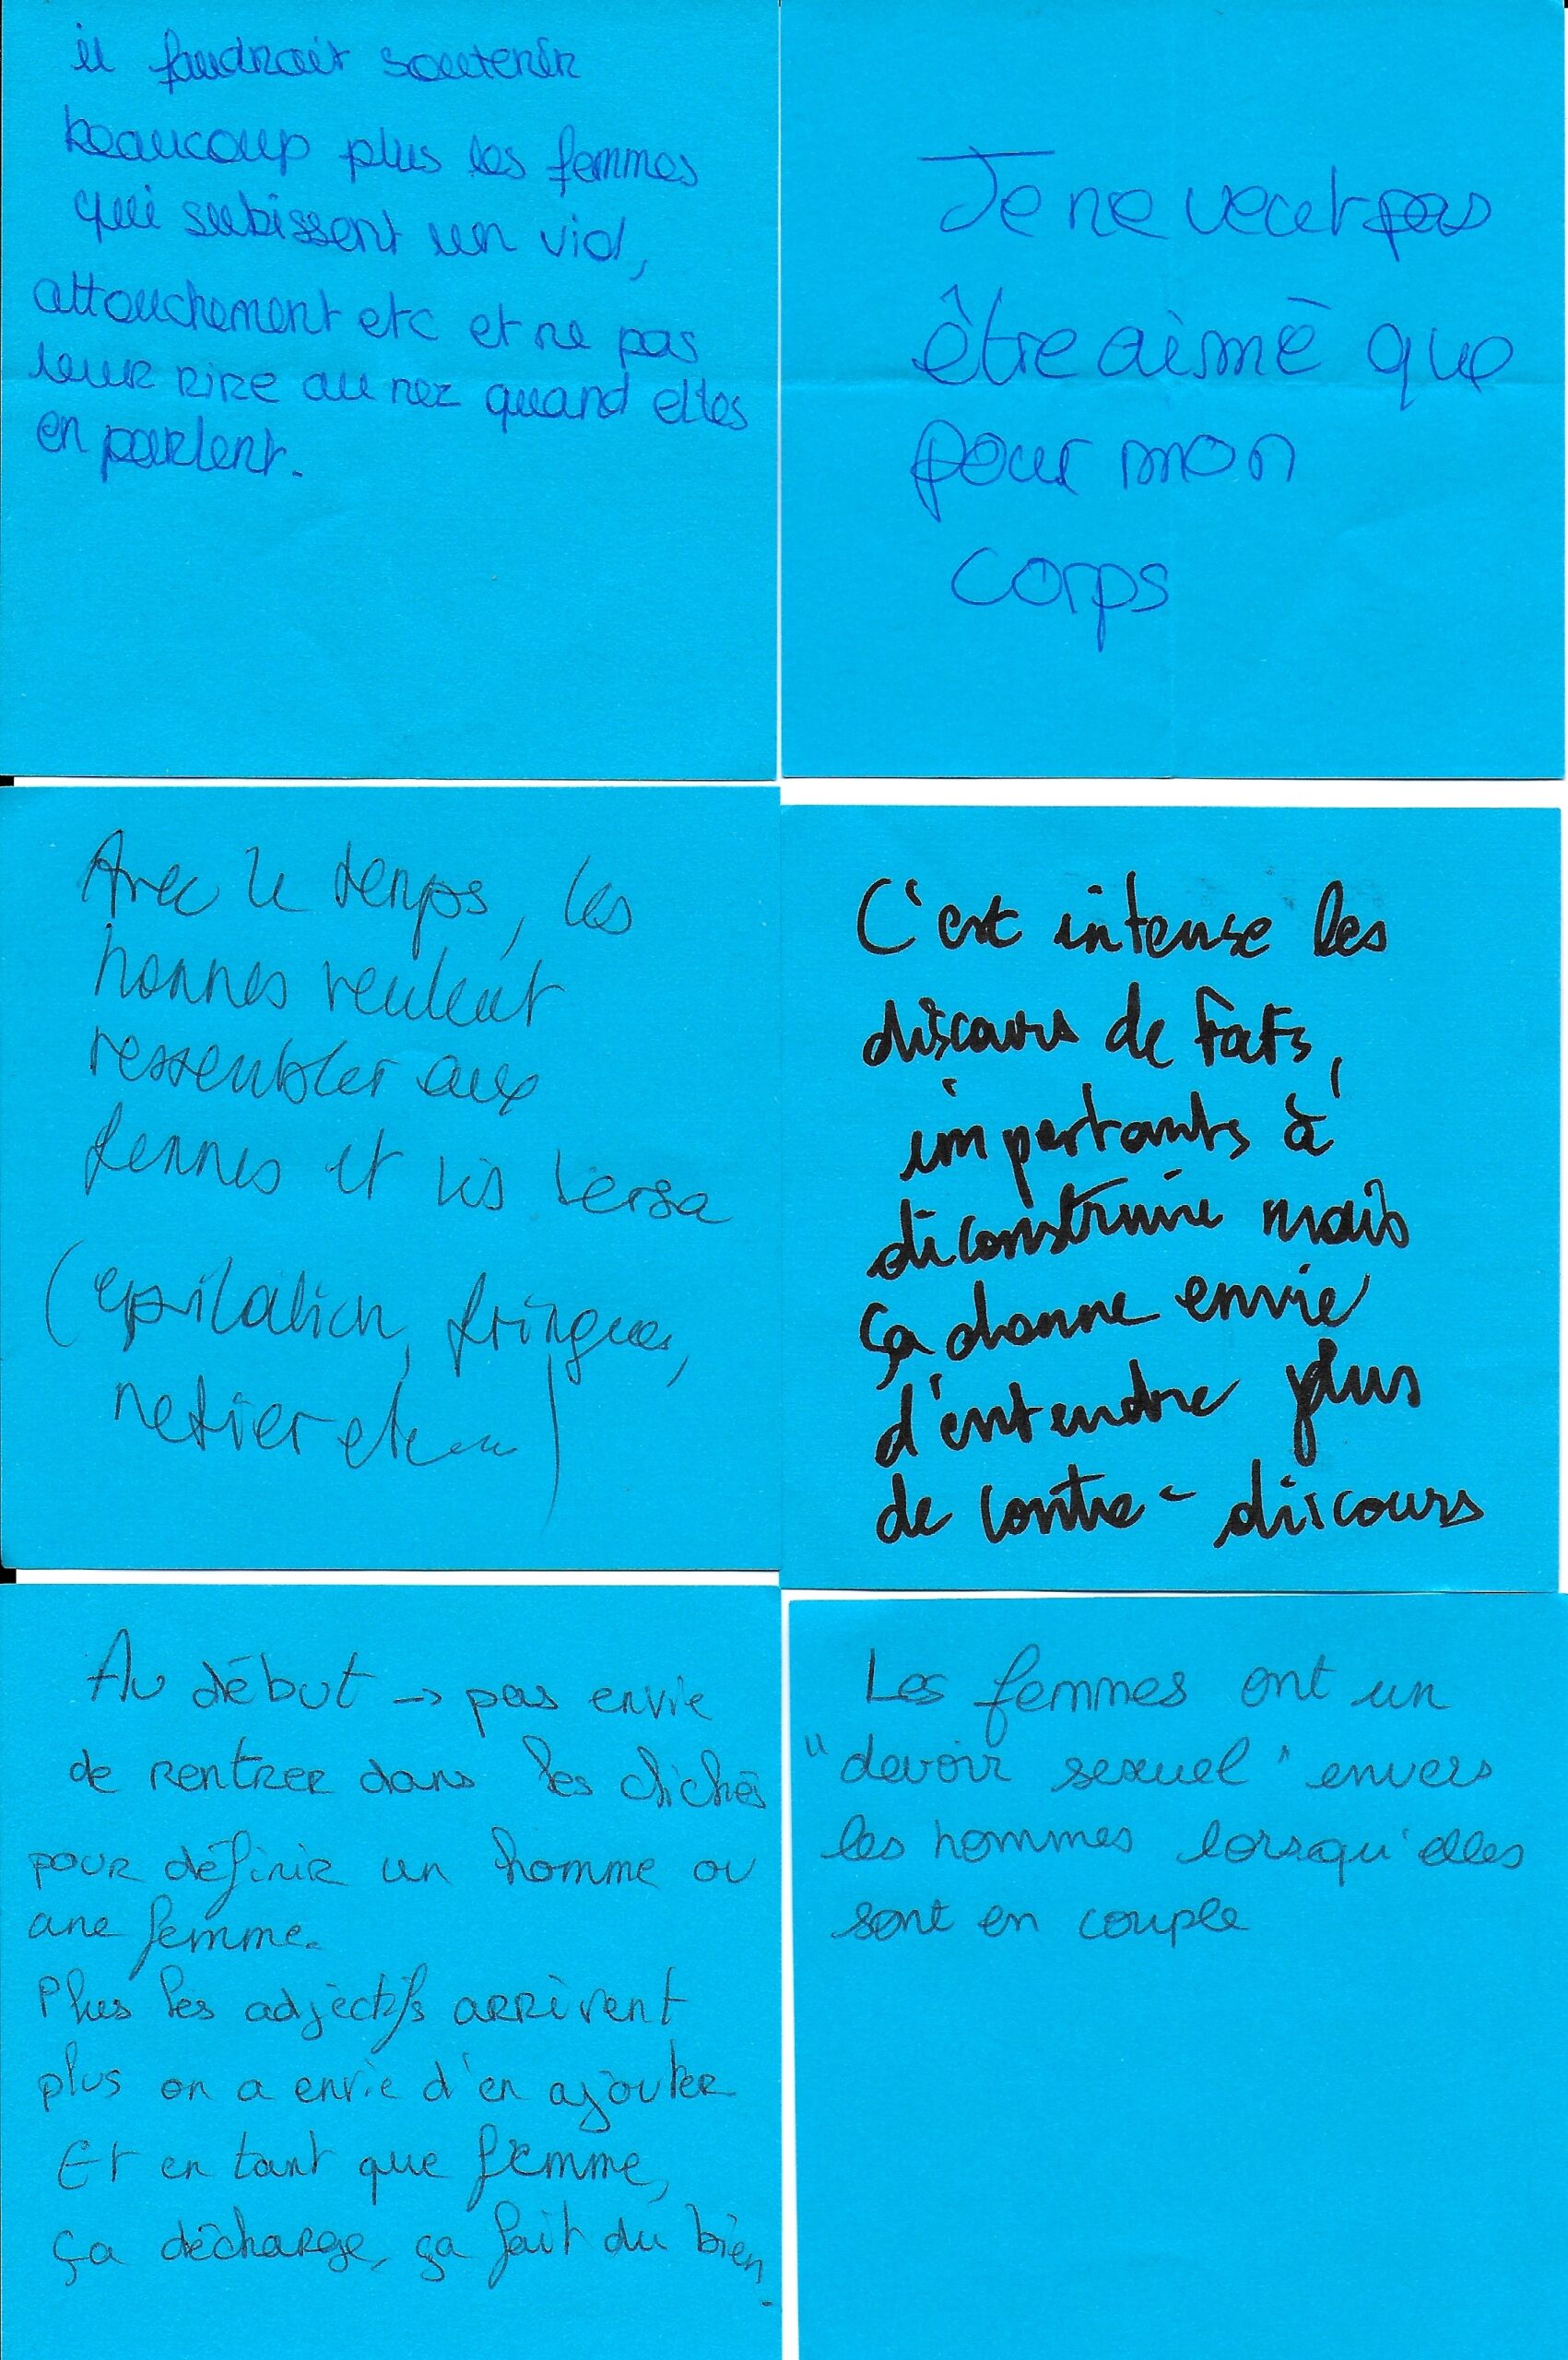 il faudrait soutenir
beaucoup plus les femmes
qui subissent un viol,
attouchement etc et ne pas
leur rire au nez quand elles
en parlent.
Je ne veut pas
être aimé que
pour mon
corps
Avec le temps, les
hommes veulent
ressembler aux
femmes et vis versa
(epilation, fringues,
metier etc...)
C'est intense les
discours de fafs,
importants à
déconstruire mais
ça donne envie
d'entendre plus
de contre-discours
Au début → pas envie
de rentrer dans les clichés
pour définir un homme ou
une femme.
Plus les adjectifs arrivent
plus on a envie d'en ajouter
Et en tant que femme,
ça décharge, ça fait du bien.
Les femmes ont un
"devoir sexuel" envers
les hommes lorsqu'elles
sont en couple